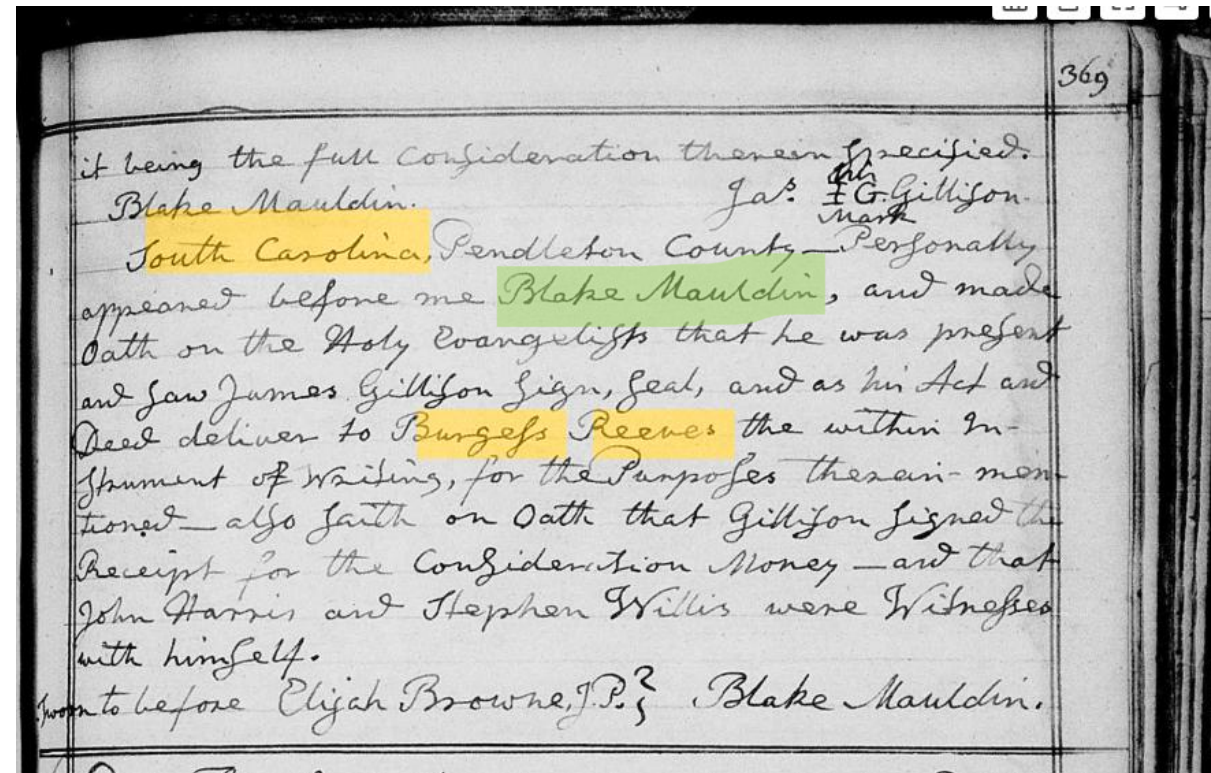 369
it being the full Consideration therein specified.
his
Blake Mauldin. Jas. I G. Gillison
Mark
South Carolina, Pendleton County — Personally
appeared before me Blake Mauldin, and made
Oath on the Holy Evangelists that he was present
and saw James Gillison sign, seal, and as his Act and
Deed deliver to Burgess Reeves the within In-
strument of Writing, for the Purposes therein-men-
tioned — also saith on Oath that Gillison signed the
Receipt for the Consideration Money — and that
John Harris and Stephen Willis were Witnesses
with himself.
Sworn to before Elijah Browne, J.P. } Blake Mauldin.